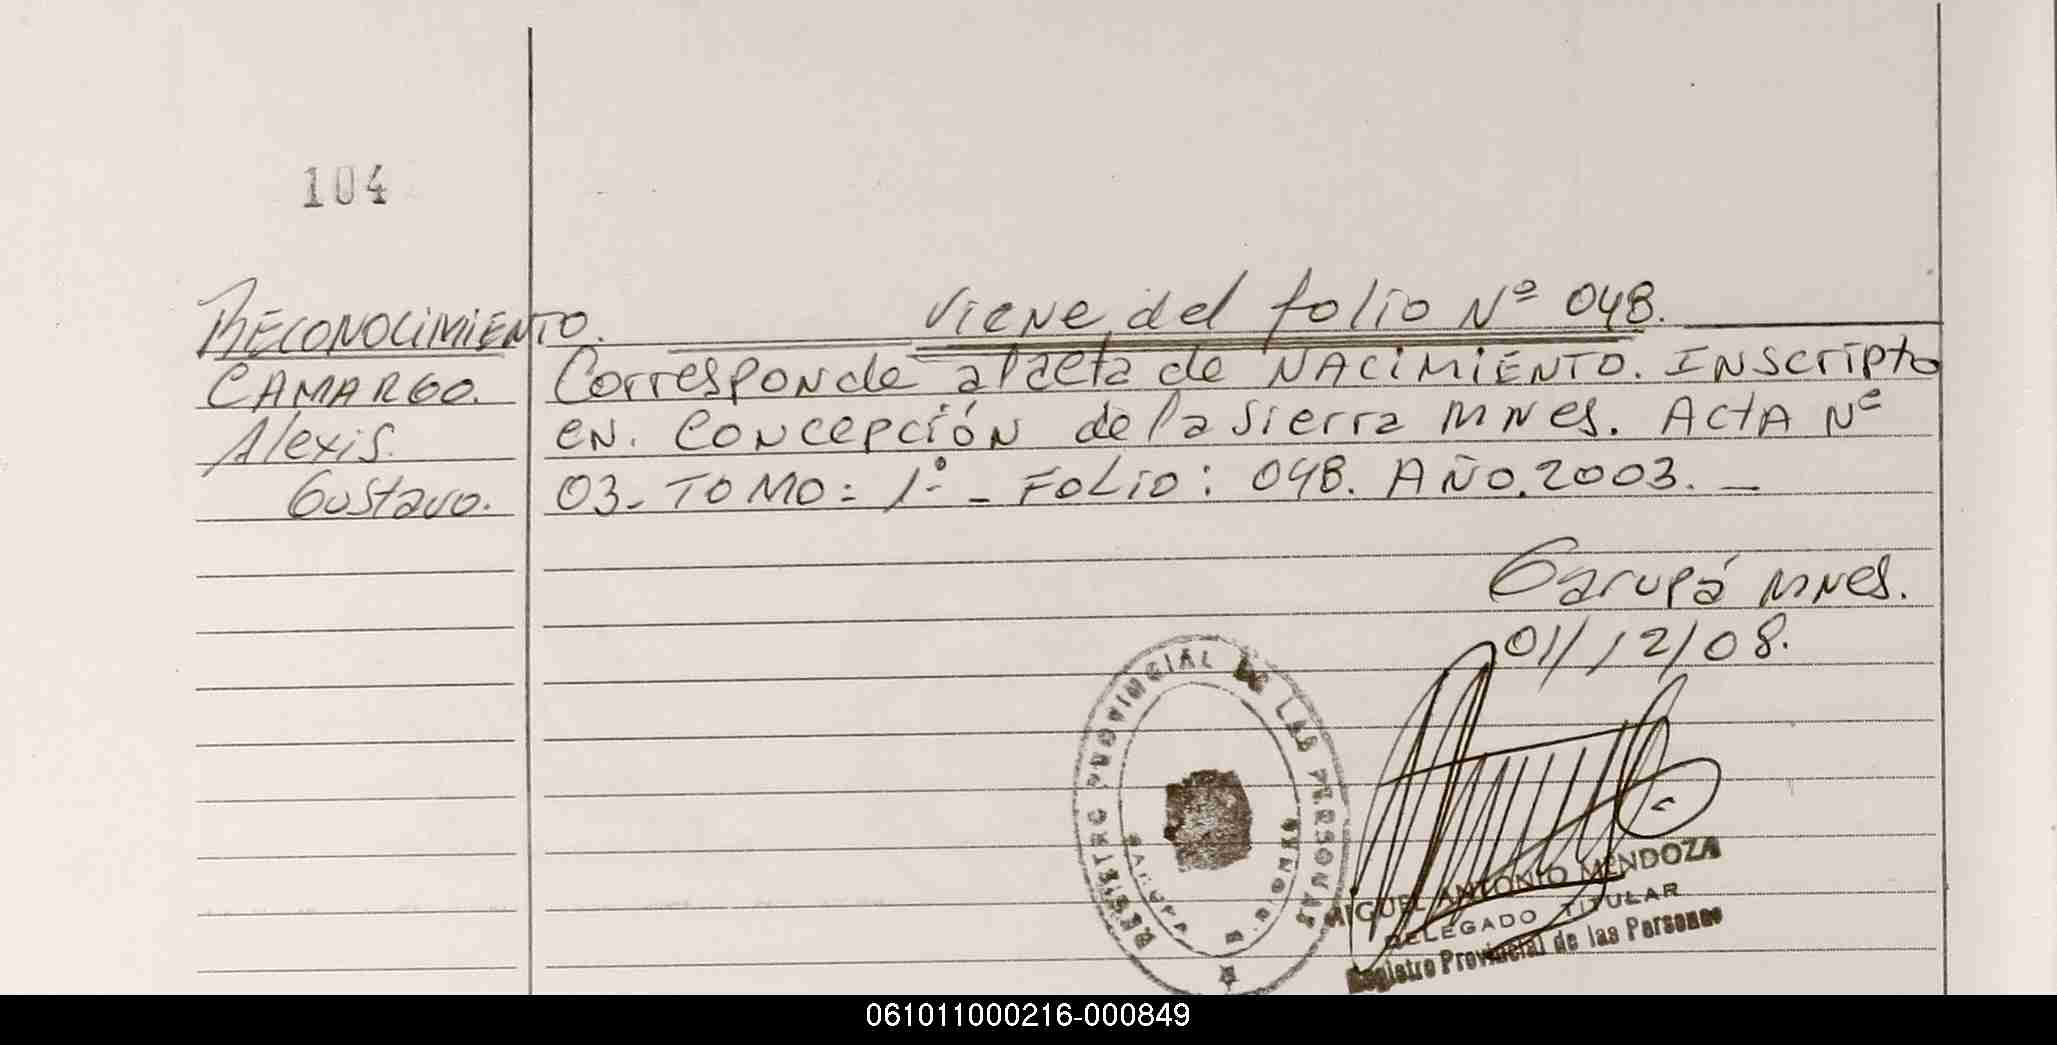 104
Viene del folio Nº 048.
RECONOCIMIENTO.
CAMARGO.
Alexis.
Gustavo.
Corresponde al acta de NACIMIENTO. INscripto
eN. CoNcepcióN de la Sierra MNes. ActA Nº
03- TOMO: 1º - FoLio: 048. AÑO. 2003. -
Garupá MNes.
01/12/08.
REGISTRO PROVINCIAL DE LAS PERSONAS
GARUPA
MISIONES
MIGUEL ANTONIO MENDOZA
DELEGADO TITULAR
Registro Provincial de las Personas
061011000216-000849